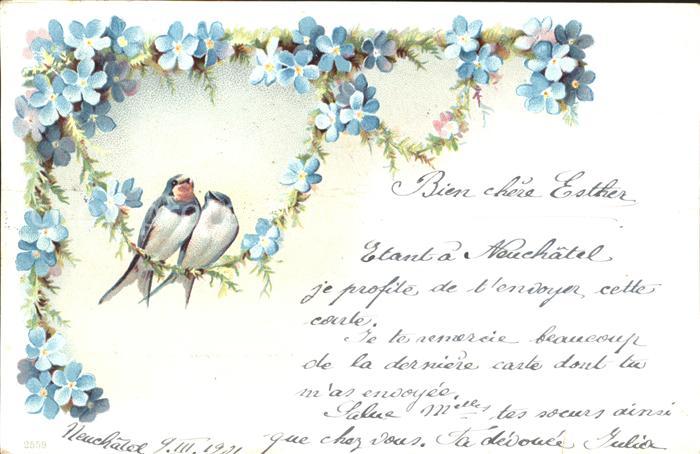 Bien chère Esther
Etant à Neuchâtel
je profite de t'envoyer cette
carte.
Je te remercie beaucoup
de la dernière carte dont tu
m'as envoyée.
Salue Melles tes soeurs ainsi
que chez vous. Ta dévouée Julia
Neuchâtel 9.III.
2559